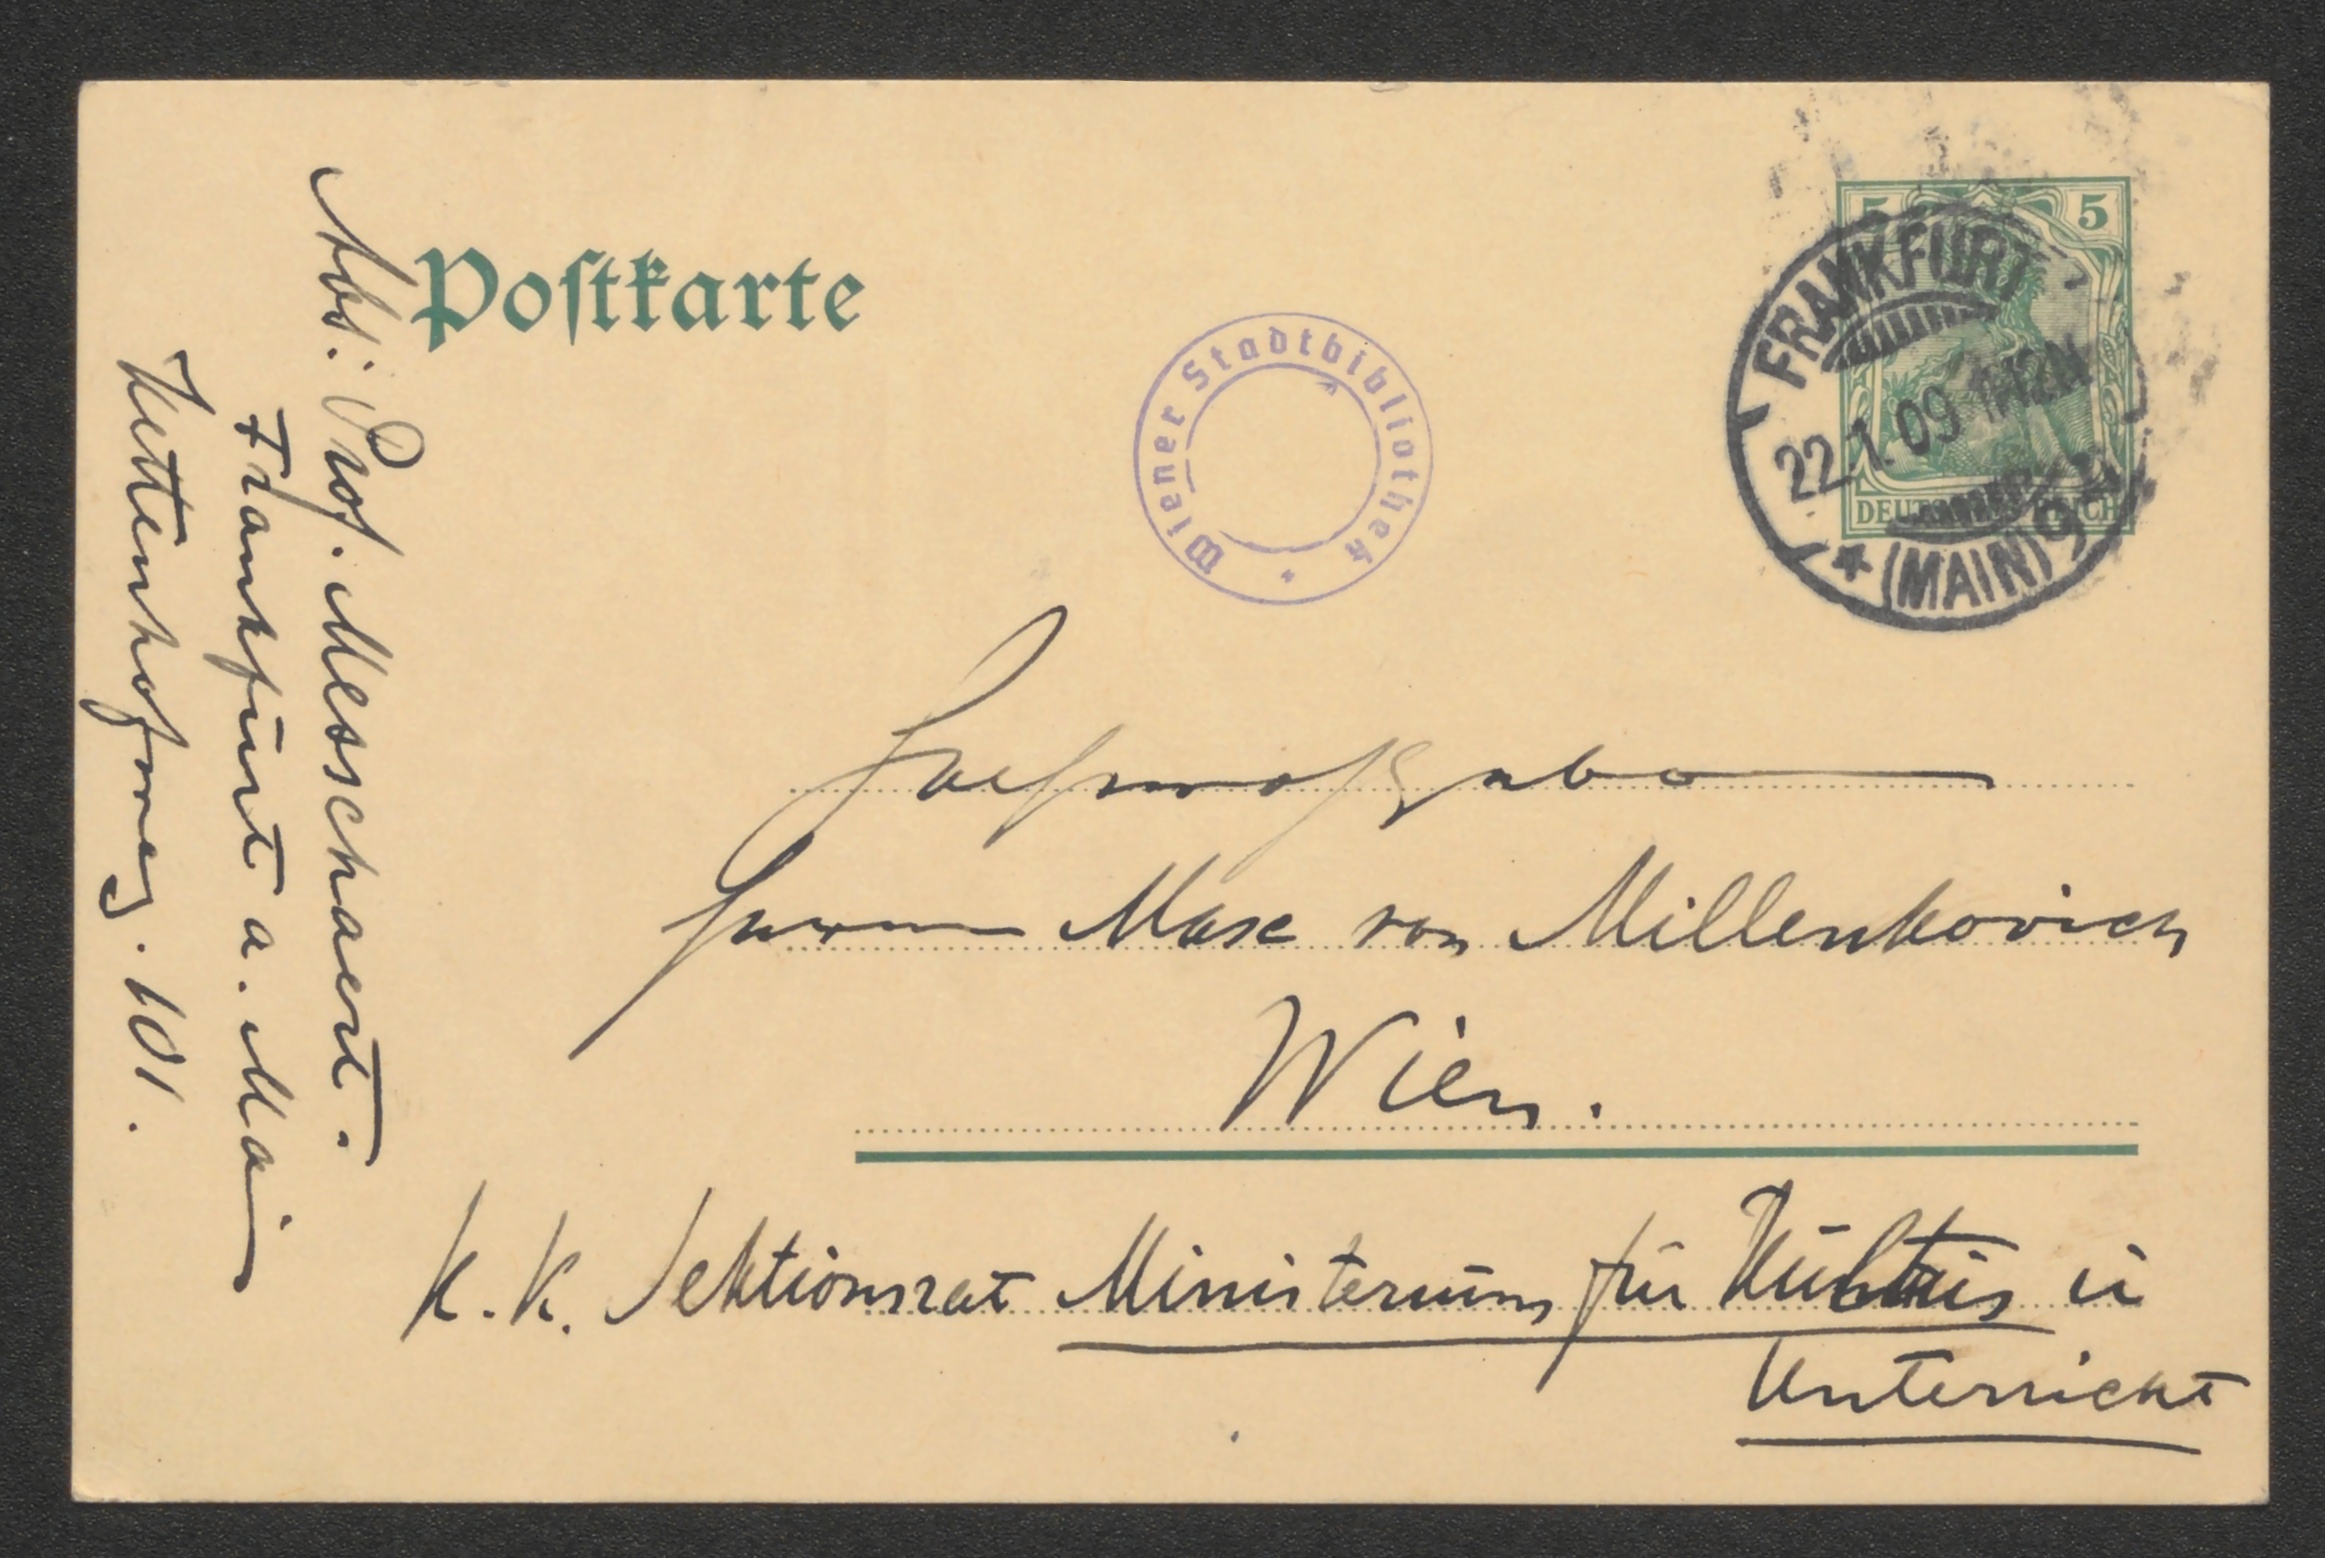 Postkarte
Abs: Prof. Messchaert.
Frankfurt a. Main
Kettenhofweg. 101.
Wiener Stadtbibliothek
5 5
DEUTSCHES REICH
FRANKFURT
22.1.09 11-12N
* (MAIN) 9
Hochwohlgeboren
Herrn Max von Millenkovich
Wien.
K. K. Sektionsrat Ministerium für Kultus u
Unterricht